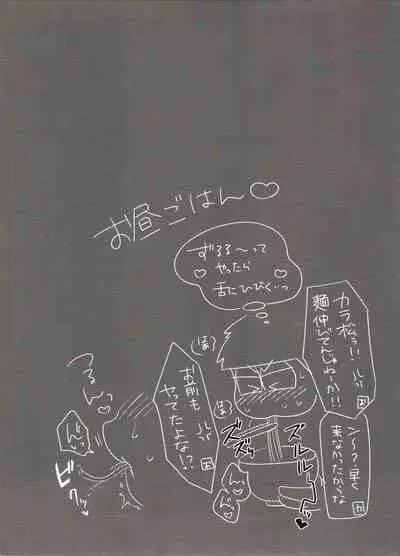 お昼ごはん♡
ずるる〜って
やったら
舌にひびく…っ
カラ松ぅ!!
麺伸びてんじゃねーか!!
ン〜?早く
来なかったからな
お前も
ヤってたよな!?
ズズッ
ズルルーッ
るんっ
ビクッ